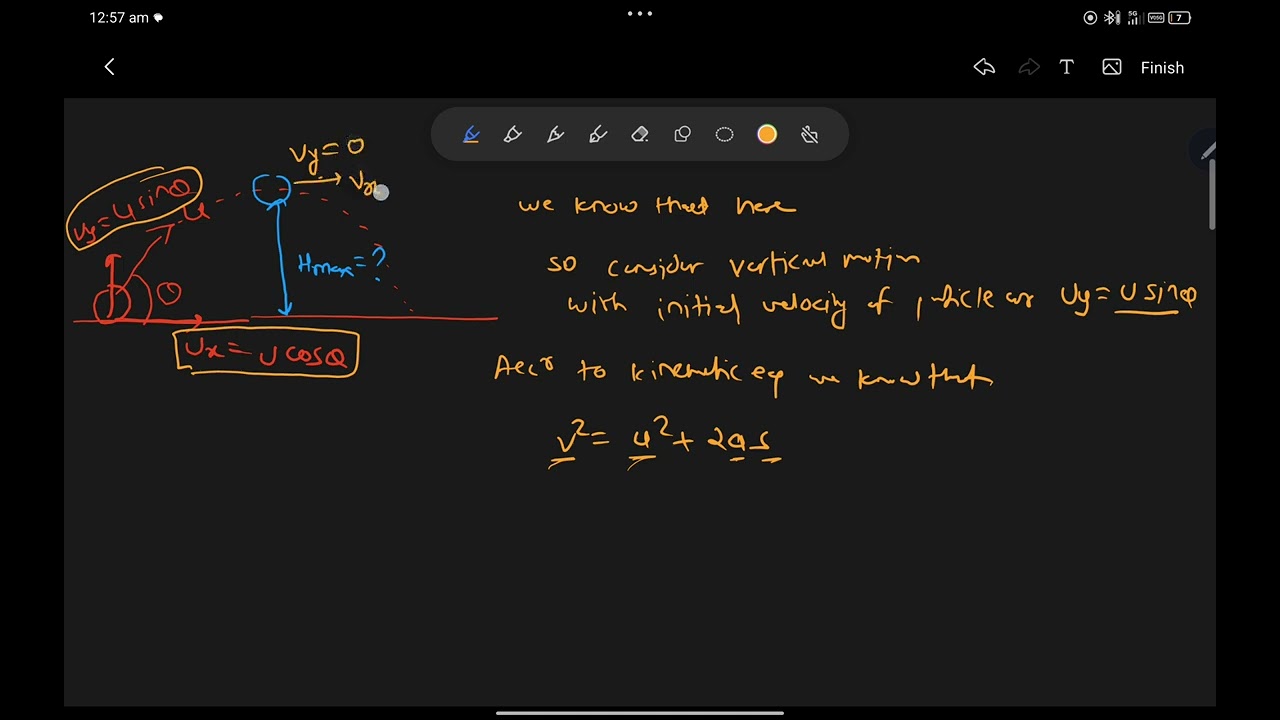 12:57 am
5G
VOSG
7
T
Finish
Vy = 0
Vx
Vy = u sinθ
u
Hmax = ?
θ
Ux = U cosθ
we know that here
so consider vertical motion
with initial velocity of particle as Uy = U sinθ
Accr to kinematic eq we know that
v² = u² + 2as